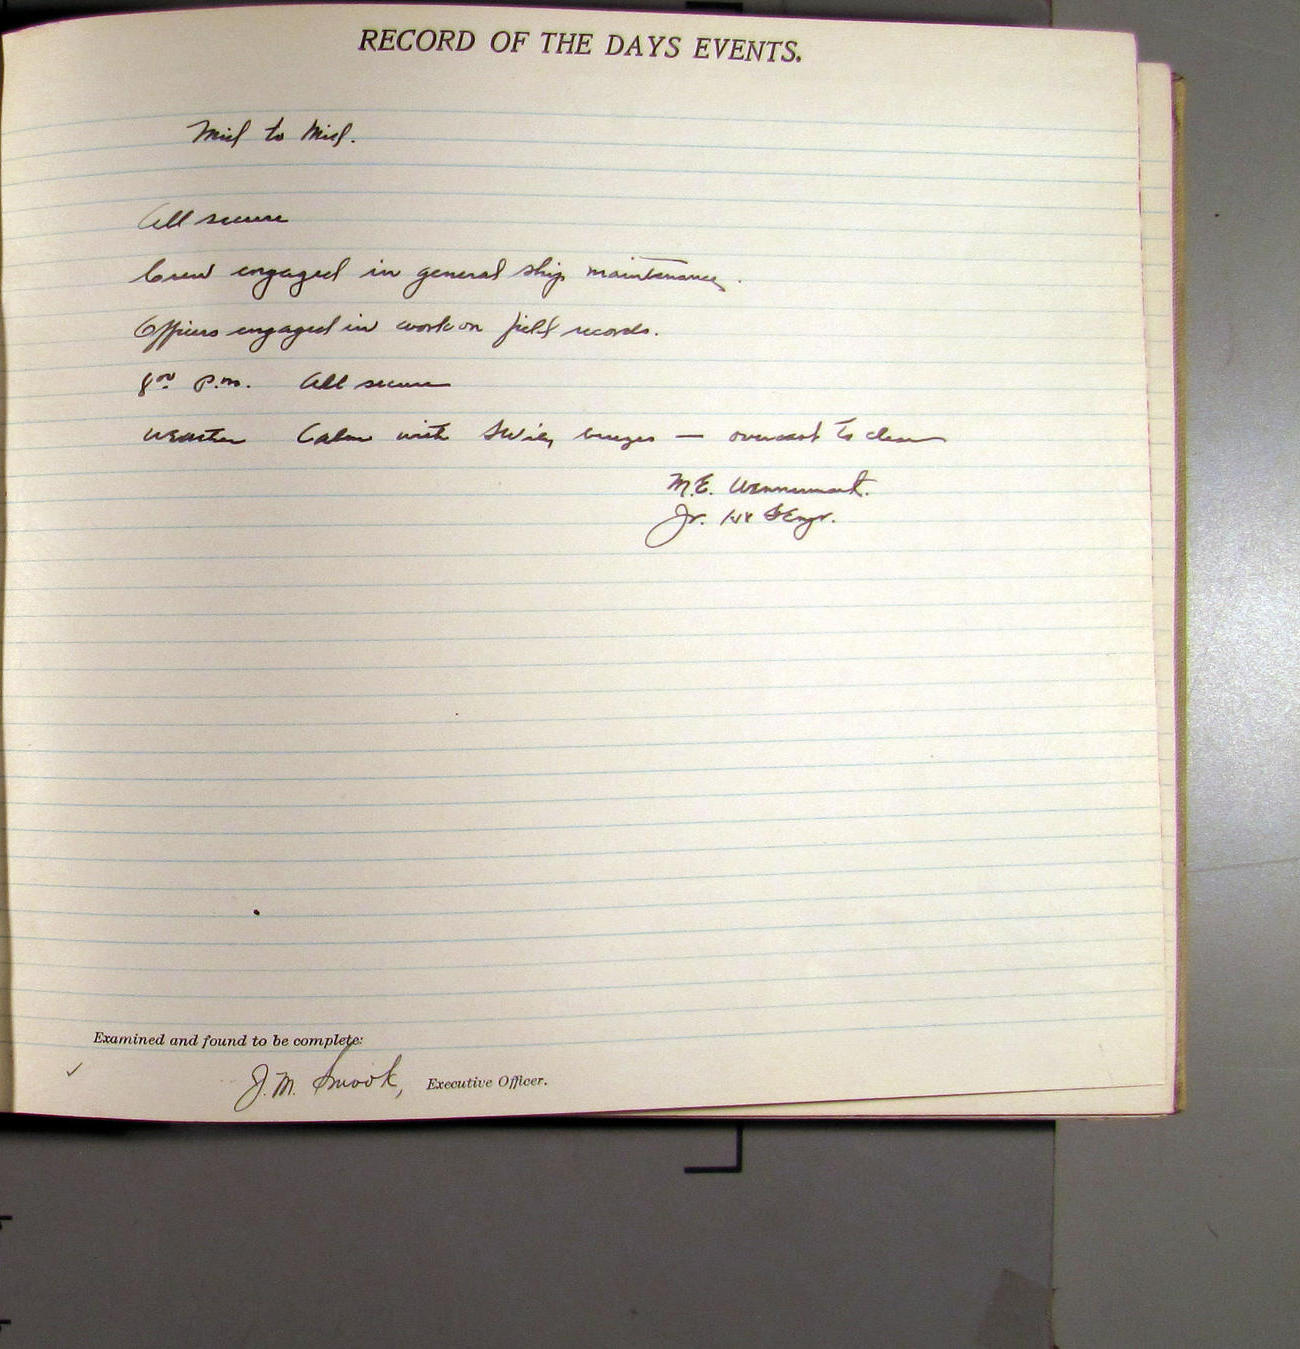 RECORD OF THE DAYS EVENTS.
Mid to Mid.
All secure
Crew engaged in general ship maintenance.
Officers engaged in work on field records.
8⁰⁰ p.m. All secure
Weather Calm with SW'ly breezes — overcast to clear
M.E. Wennermark.
Jr. H & G Engr.
Examined and found to be complete:
J. M. Smook, Executive Officer.